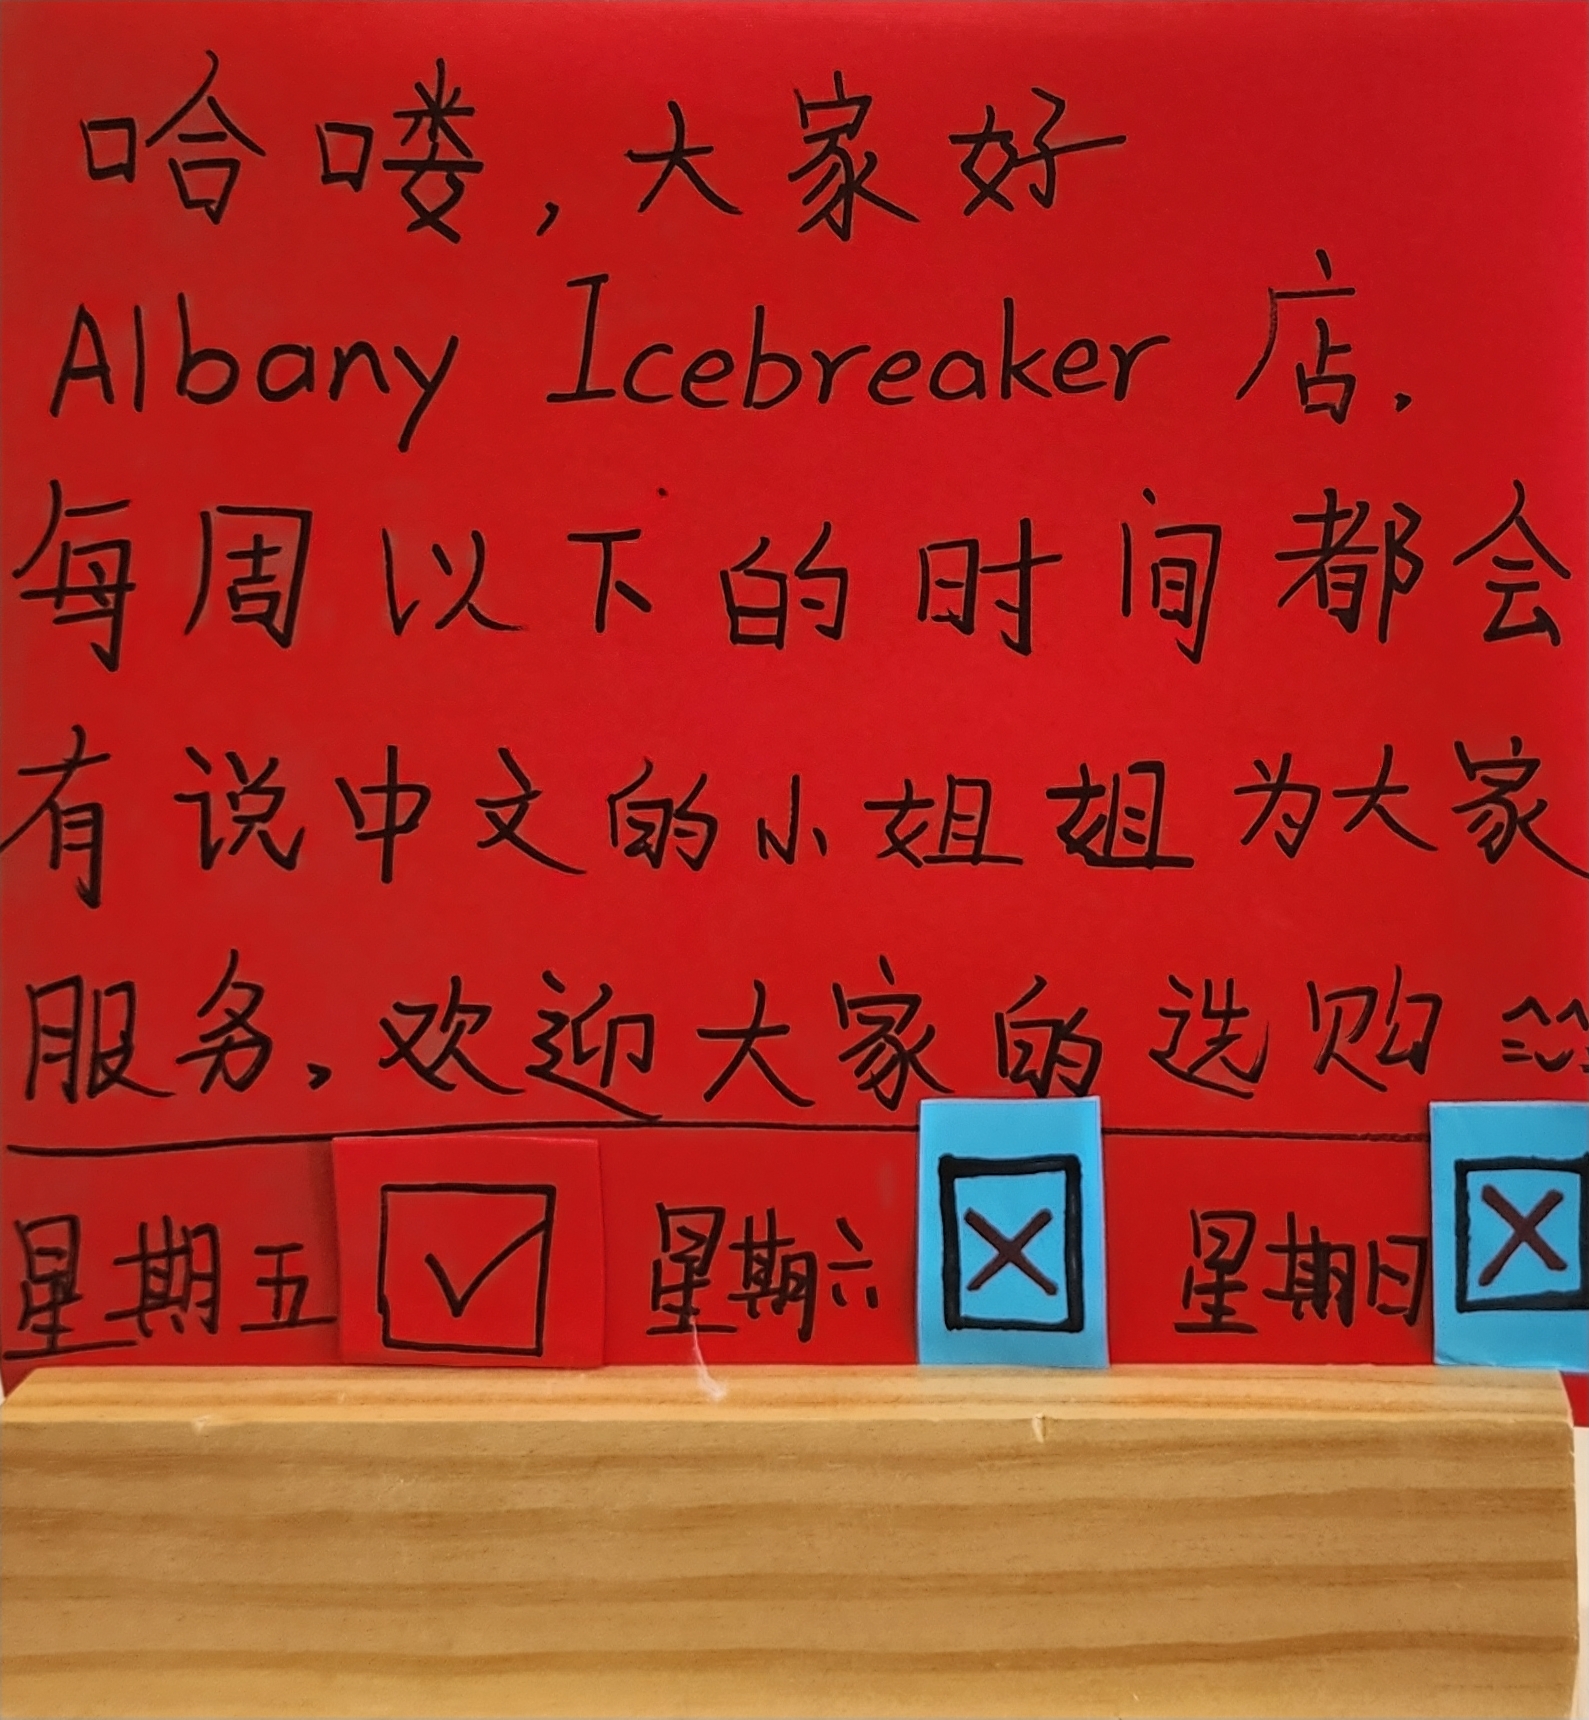 哈喽,大家好
Albany Icebreaker 店.
每周以下的时间都会
有说中文的小姐姐为大家
服务,欢迎大家的选购
星期五 ☑ 星期六 ☒ 星期日 ☒